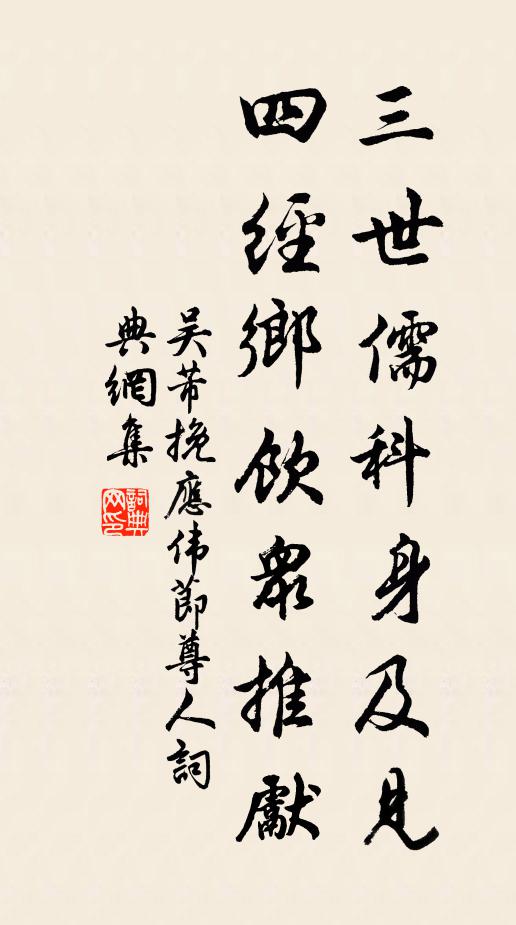 三世儒科身及見
四經鄉飲眾推獻
吴芾挽應伟節尊人詞
典網集
詞典网印